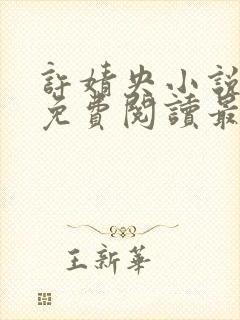 許婧央小說
免費閱讀最
王新華